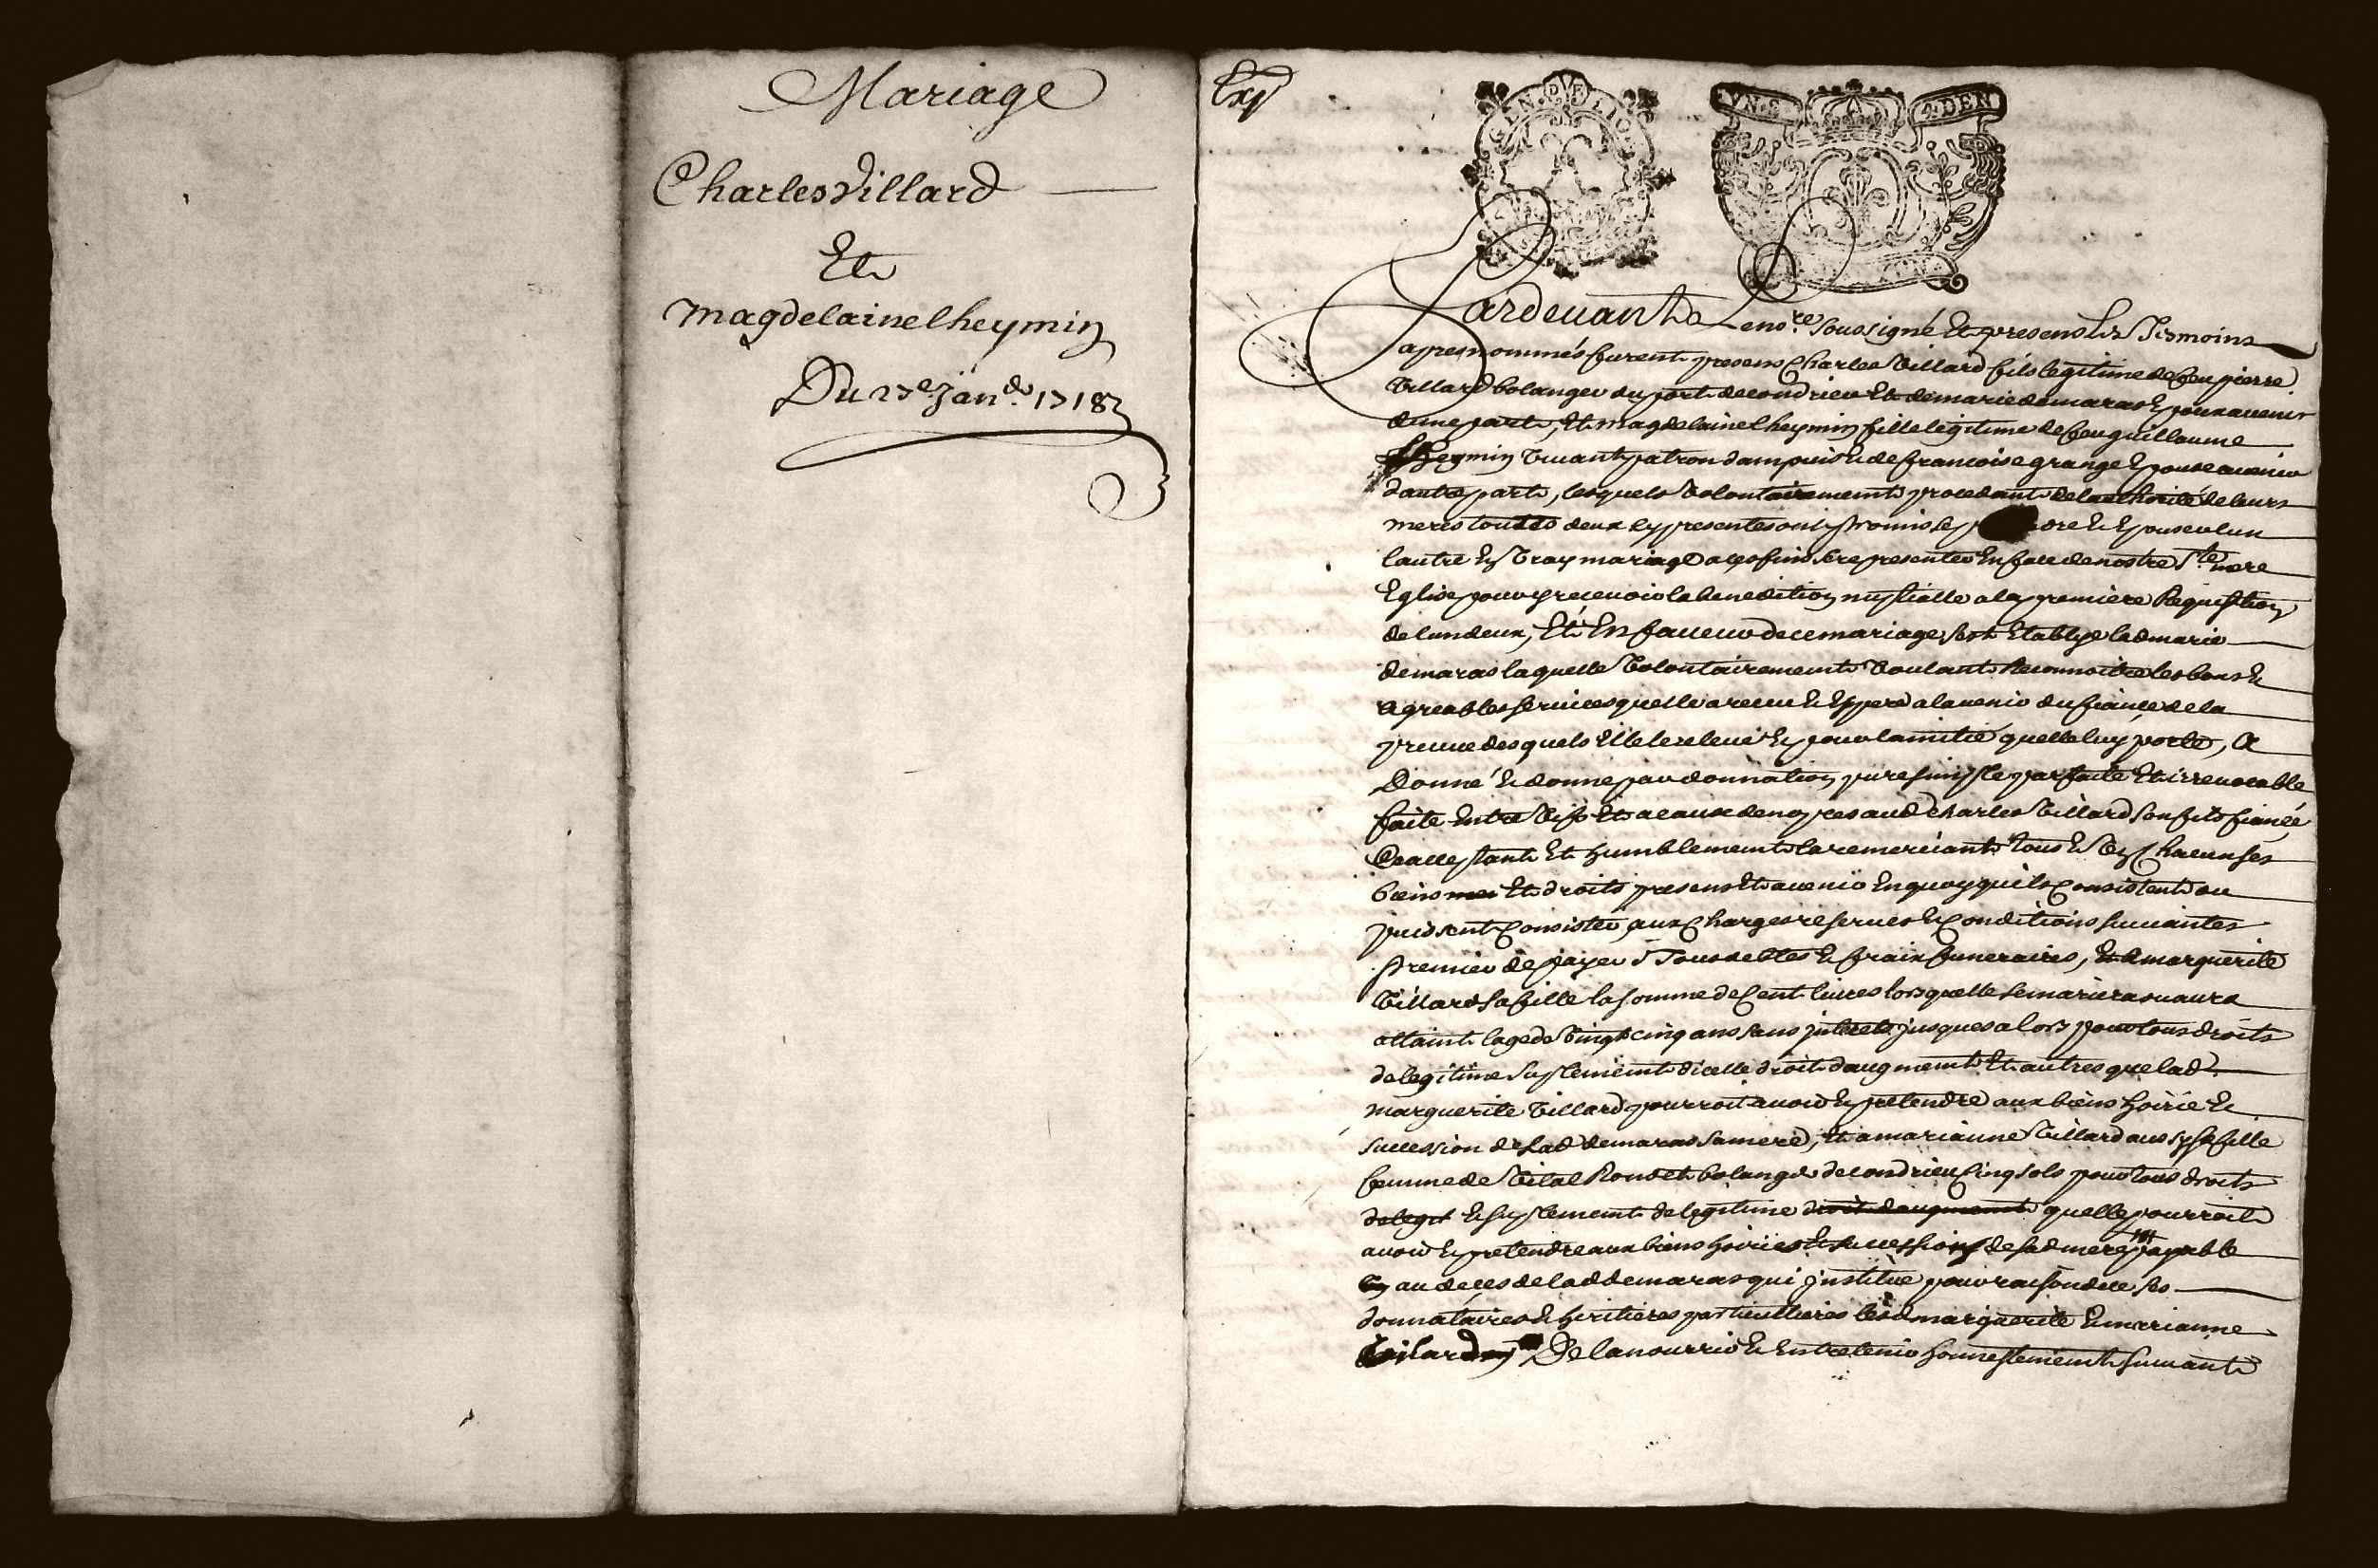 Mariage
Charles Villard
Et
Magdelaine lheymin
Du 27e Janer 1718
Exp
GEN. DE LIO
VN S 4 DEN
Pardevant Le nore soussigné Et presens les Tesmoins
apres nommés furent presens Charles Villard fils legitime de feu pierre
Villard bolanger du port de condrieu Et de marie demaras Epoux avenir
dune part, Et Magdelaine lheymin fille legitime de feu guillaume
lheymin vivant patron dampuis & de francoise grange Epouse avenir
dautre part, lesquels volontairement procedant de lauthorité de leurs
meres touttes deux ey presentes ont promis se dre & Epouser lun
lautre En vray mariage a ces fins se representer En face de nostre Ste mere
Eglise pour y recevoir la benedition nuptialle a la premiere Requisition
de lun deux, Et En faveur de ce mariage sest Etablye lad marie
demaras laquelle volontairement voulant Reconnoitre les bons &
agreables services quelle a receu & Espere a lavenir du fiancé de la
preuve desquels Elle le releve & pour lamitié quelle luy porte, a
Donné & donne par donnation pure simple parfaite Et irrevocable
faite Entre vifs Et a cause de nopces aud Charles Villard son fils fiancé
Ce acceptant Et humblement la remerciant tous & Un Chacun ses
biens Et droits presens Et avenir En quoy quils Consistent ou
puissent Consister, aux Charges reserves & Conditions suivantes
premier de payer Tous debtes & fraix funeraires, Et a marguerite
Villard sa fille la somme de Cent livres lors quelle se mariera ou aura
attaint lage de vingt cinq ans sans interets jusques a lors pour tous droits
de legitime suplement dicelle droit daugment Et autres que lad
marguerite Villard pourroit avoir & pretendre aux biens hoirie &
succession de Lad demaras sa mere, Et a marianne Villard aussy sa fille
femme de Vital Rondet bolanger de condrieu Cinq sols pour tous droits
de legit & suplement de legitime droit daugment quelle pourroit
avoir & pretendre aux biens hoiries & succession de sad mere payable
au deces de lad demaras qui institue pour raison de ce ses
donnataires & heritieres particullieres lesd marguerite & marianne
Villard De la nourrir & Entretenir honnestement suivant